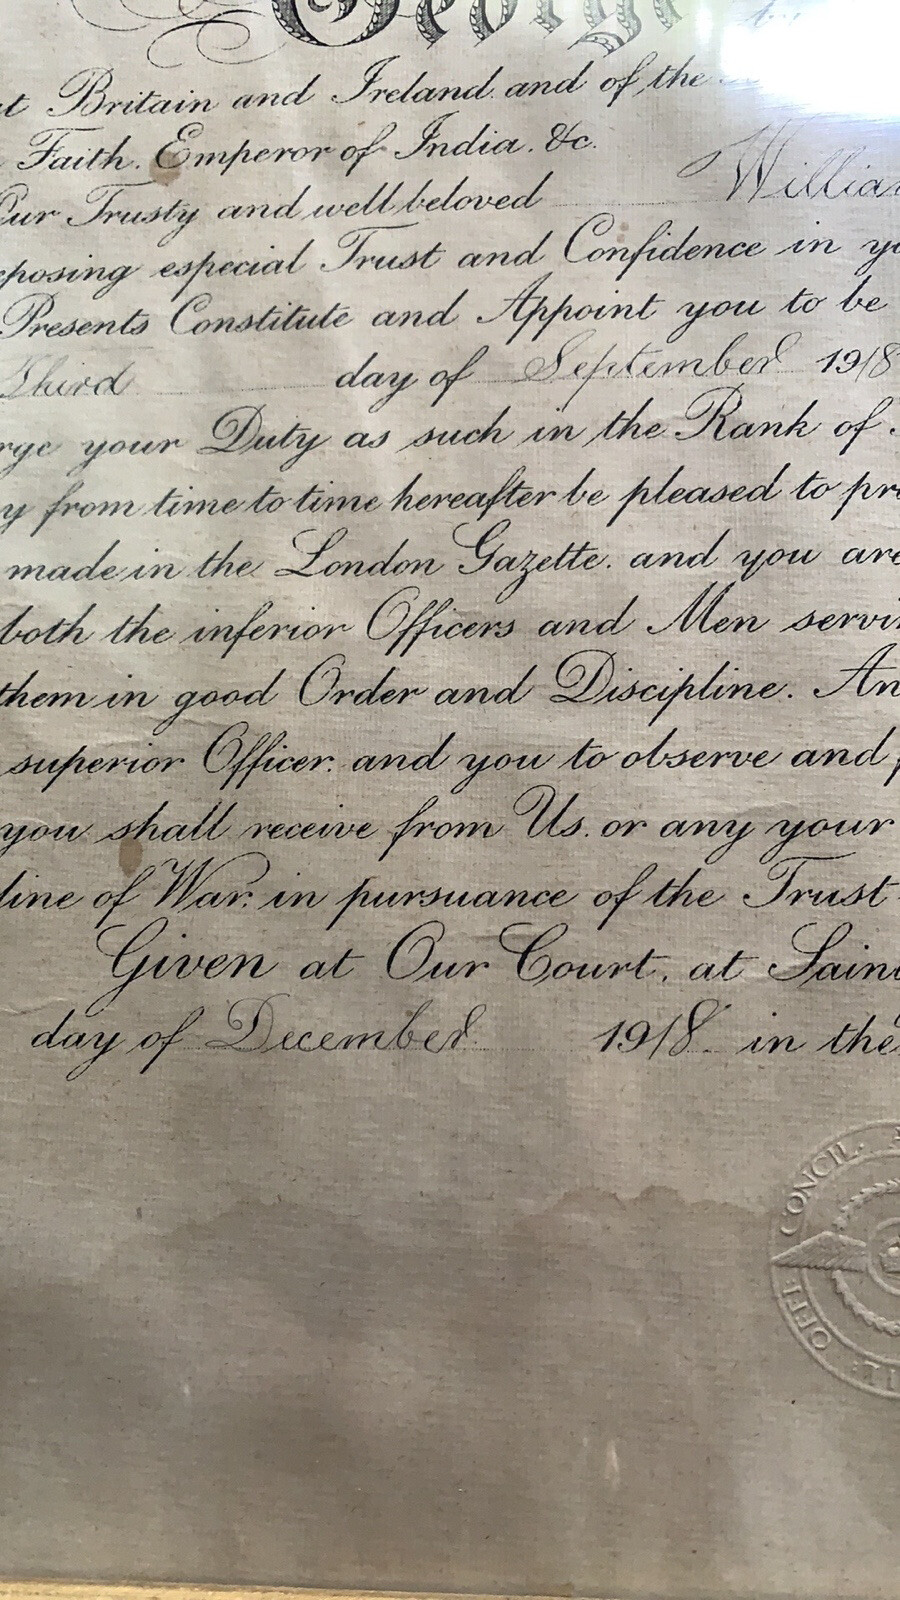 George
Britain and Ireland and of the
Faith. Emperor of India. &c.
Our Trusty and well beloved William
especial Trust and Confidence in
Presents Constitute and Appoint you to be
Third day of September 1918
your Duty as such in the Rank of
from time to time hereafter be pleased to
made in the London Gazette. and you are
both the inferior Officers and Men
them in good Order and Discipline.
superior Officer. and you to observe and
you shall receive from Us. or any your
of War. in pursuance of the Trust
Given at Our Court, at
day of December 1918 in the
CONCIL.